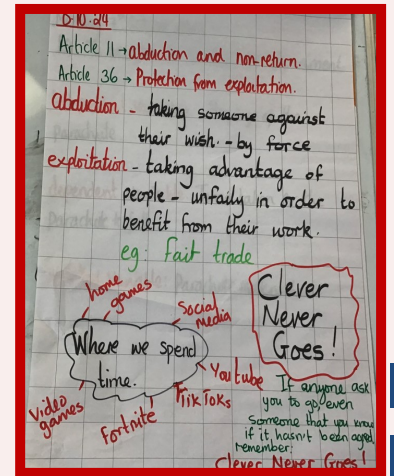 0:10.24
Article 11→abduction and non-return.
Article 36→Protection from exploitation.
abduction - taking someone against
their wish. - by force
exploitation - taking advantage of
people - unfaily in order to
benefit from their work.
eg: fait trade
home
games
Social
media
Where we spend
time.
Youtube
TikToks
Fortnite
Video
games
Clever
Never
Goes!
If anyone ask
you to go, even
someone that you know
if it hasn't been agreed
remember:
Clever Never Goes!